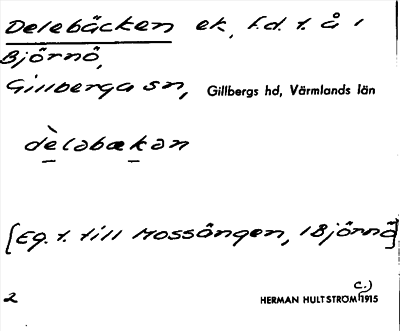 Delebäcken ek, f.d. t. å i
Björnö,
Gillberga sn, Gillbergs hd, Värmlands län
dèləbækən
[Eg. t. till Mossängen, i Björnö]
2 HERMAN HULTSTRÖM c.) 1915